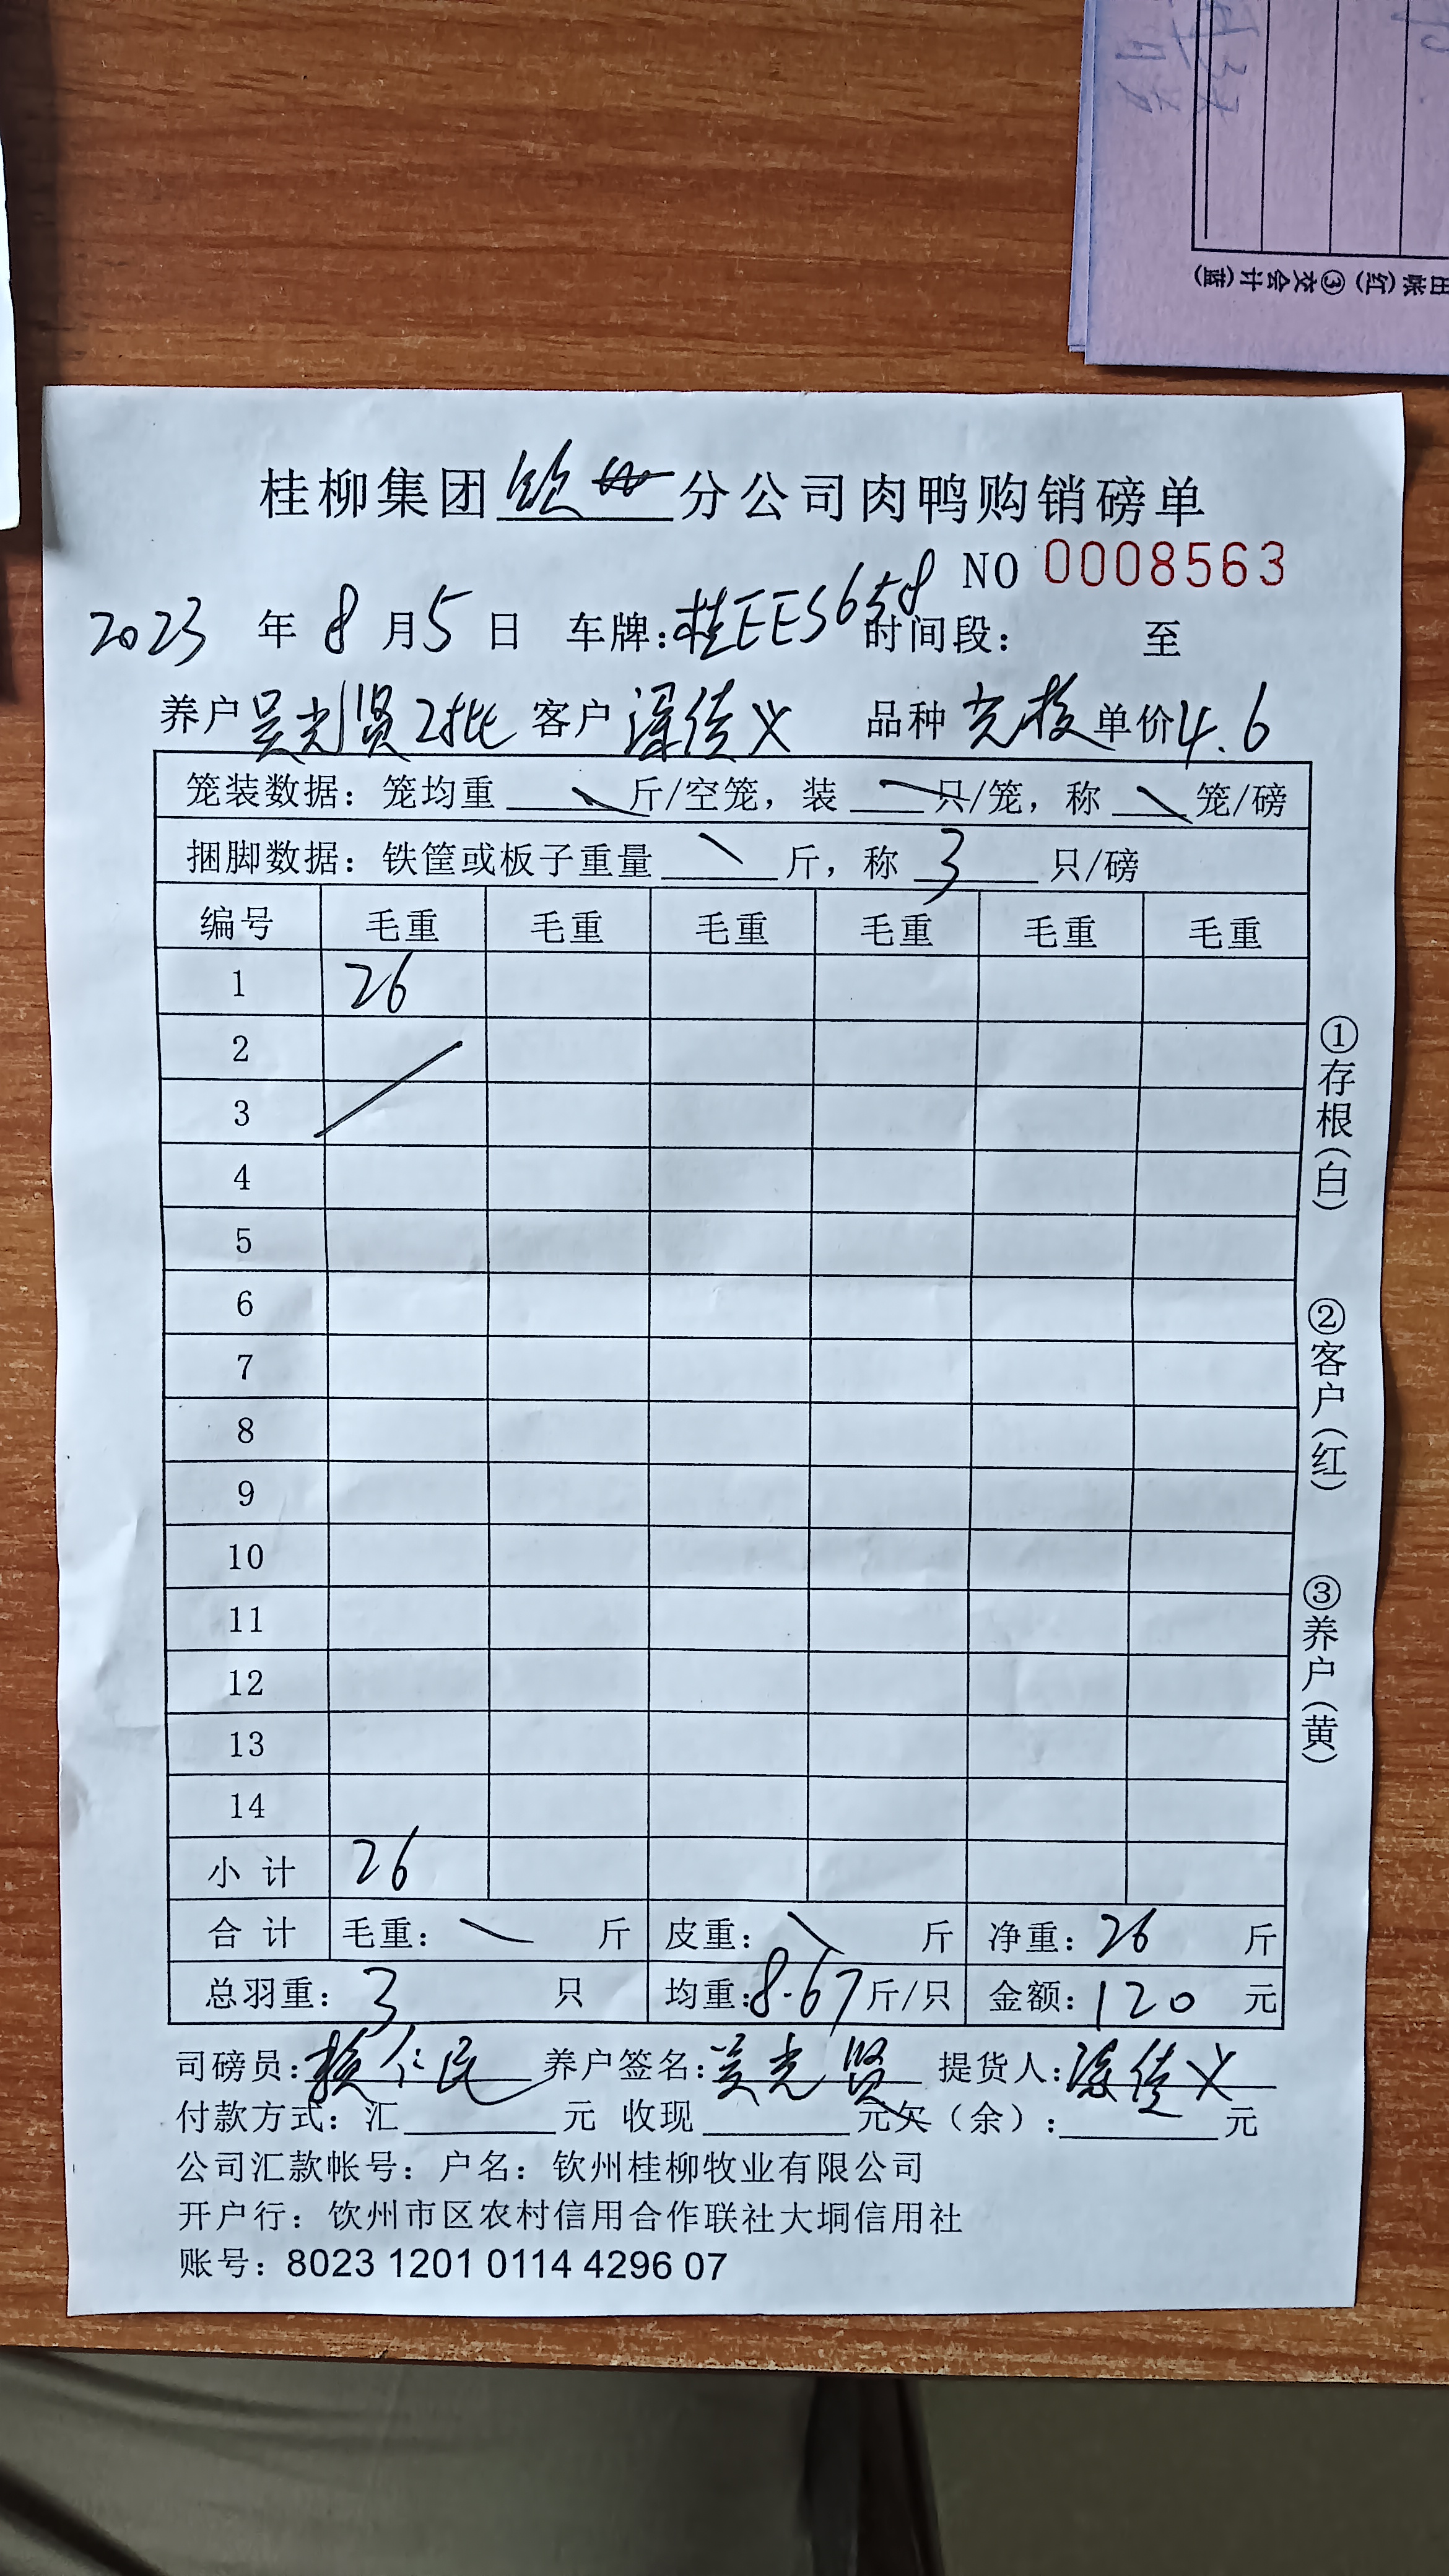 桂柳集团钦州分公司肉鸭购销磅单
NO 0008563
2023 年 8 月 5 日 车牌:桂EES658 时间段: 至
养户 吴光贤2批 客户 义 品种 单价 4.6
笼装数据: 笼均重 斤/空笼, 装 只/笼, 称 笼/磅
捆脚数据: 铁筐或板子重量 斤, 称 3 只/磅
编号 毛重 毛重 毛重 毛重 毛重 毛重
1 26
2
3
4
5
6
7
8
9
10
11
12
13
14
小计 26
合计 毛重: 斤 皮重: 斤 净重: 26 斤
总羽重: 3 只 均重:8.67斤/只 金额:120 元
司磅员:仁民 养户签名:吴光贤 提货人: 义
付款方式: 汇 元 收现 元欠(余): 元
公司汇款帐号: 户名: 钦州桂柳牧业有限公司
开户行: 饮州市区农村信用合作联社大垌信用社
账号: 8023 1201 0114 4296 07
①存根(白)
②客户(红)
③养户(黄)
出账(红) ③交会计(蓝)